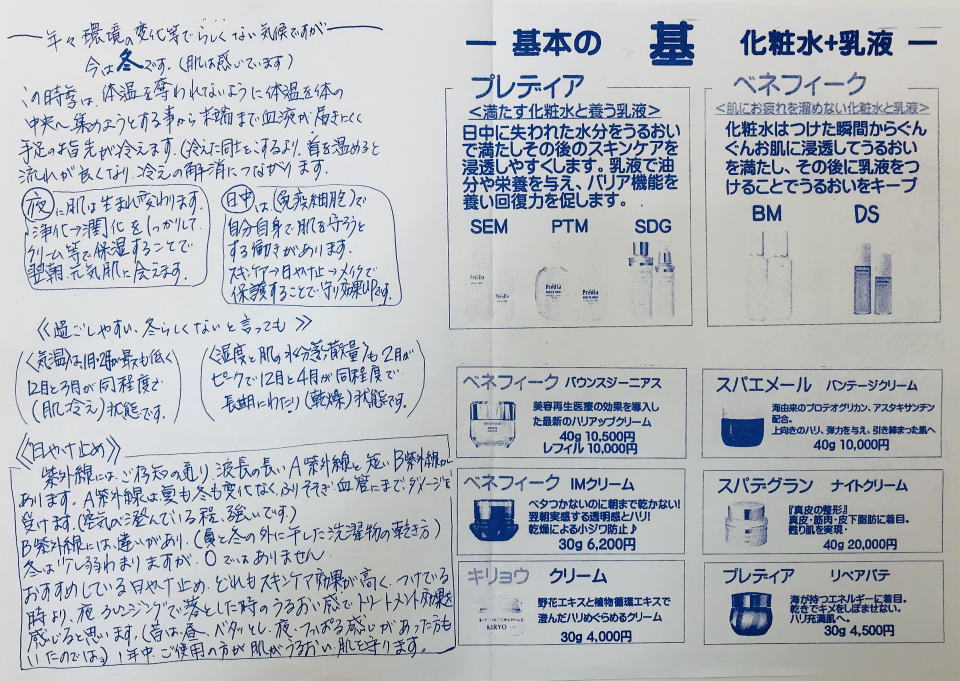 年々環境の変化等でらしくない気候ですが
今は冬です。(肌は感じています)
この時季は、体温を奪われてないように体温を体の
中央へ集めようとする事から末端まで血液が届きにくく
手足のお指先が冷えます。(冷えた同士こするより、首を温めると
流れが良くなり、冷えの解消につながります。
夜に肌は生まれ変わります。
浄化→潤化をしっかりして
クリーム等で保湿することで
翌朝、元気肌に会えます。
日中は(免疫細胞)で
自分自身で肌を守ろうと
する働きがあります。
スキンケア→日やけ止→メイクで
保護することで守り効果UPです。
《過ごしやすい、冬らしくないと言っても》
〈気温〉は1月・2月が最も低く
12月と3月が同程度で
(肌冷え)状態です。
〈湿度と肌の水分蒸散量〉も2月が
ピークで12月と4月が同程度で
長期にわたり(乾燥)状態です。
《日やけ止め》
紫外線には、ご存知の通り、波長の長いA紫外線と短いB紫外線が
あります。A紫外線は夏も冬も変化なく、ふりそそぎ血管にまでダメージを
受けます。(空気が澄んでいる程、強いです。)
B紫外線には違いがあり、(夏と冬の外に干した洗濯物の乾き方)
冬は少し弱わまりますが、0ではありません。
おすすめしている日やけ止め、どれもスキンケア効果が高く、つけている
時より、夜クレンジングで落とした時のうるおい感でトリートメント効果を
感じると思います。(昔は、昼、ベタッとし、夜、つっぱる感じがあった方も
いたのでは)1年中、ご使用の方が肌がうるおい肌を守ります。
― 基本の 基 化粧水+乳液 ―
プレディア
<満たす化粧水と養う乳液>
日中に失われた水分をうるおい
で満たしその後のスキンケアを
浸透しやすくします。乳液で油
分や栄養を与え、バリア機能を
養い回復力を促します。
SEM PTM SDG
ベネフィーク
<肌にお疲れを溜めない化粧水と乳液>
化粧水はつけた瞬間からぐん
ぐんお肌に浸透してうるおい
を満たし、その後に乳液をつ
けることでうるおいをキープ
BM DS
ベネフィーク バウンスジーニアス
美容再生医療の効果を導入し
た最新のハリアップクリーム
40g 10,500円
レフィル 10,000円
スパエメール バンテージクリーム
海由来のプロテオグリカン、アスタキサンチン
配合。
上向きのハリ、弾力を与え、引き締まった肌へ
40g 10,000円
ベネフィーク IMクリーム
ベタつかないのに朝まで乾かない!
翌朝実感する透明感とハリ!
乾燥による小ジワ防止♪
30g 6,200円
スパデグラン ナイトクリーム
『真皮の整形』
真皮・筋肉・皮下脂肪に着目。
甦り肌を実現・
40g 20,000円
キリョウ クリーム
KIRYO
野花エキスと植物循環エキスで
澄んだハリめぐらめるクリーム
30g 4,000円
プレディア リペアパテ
海が持つエネルギーに着目。
乾きでキメをしぼませない。
ハリ充満肌へ。
30g 4,500円